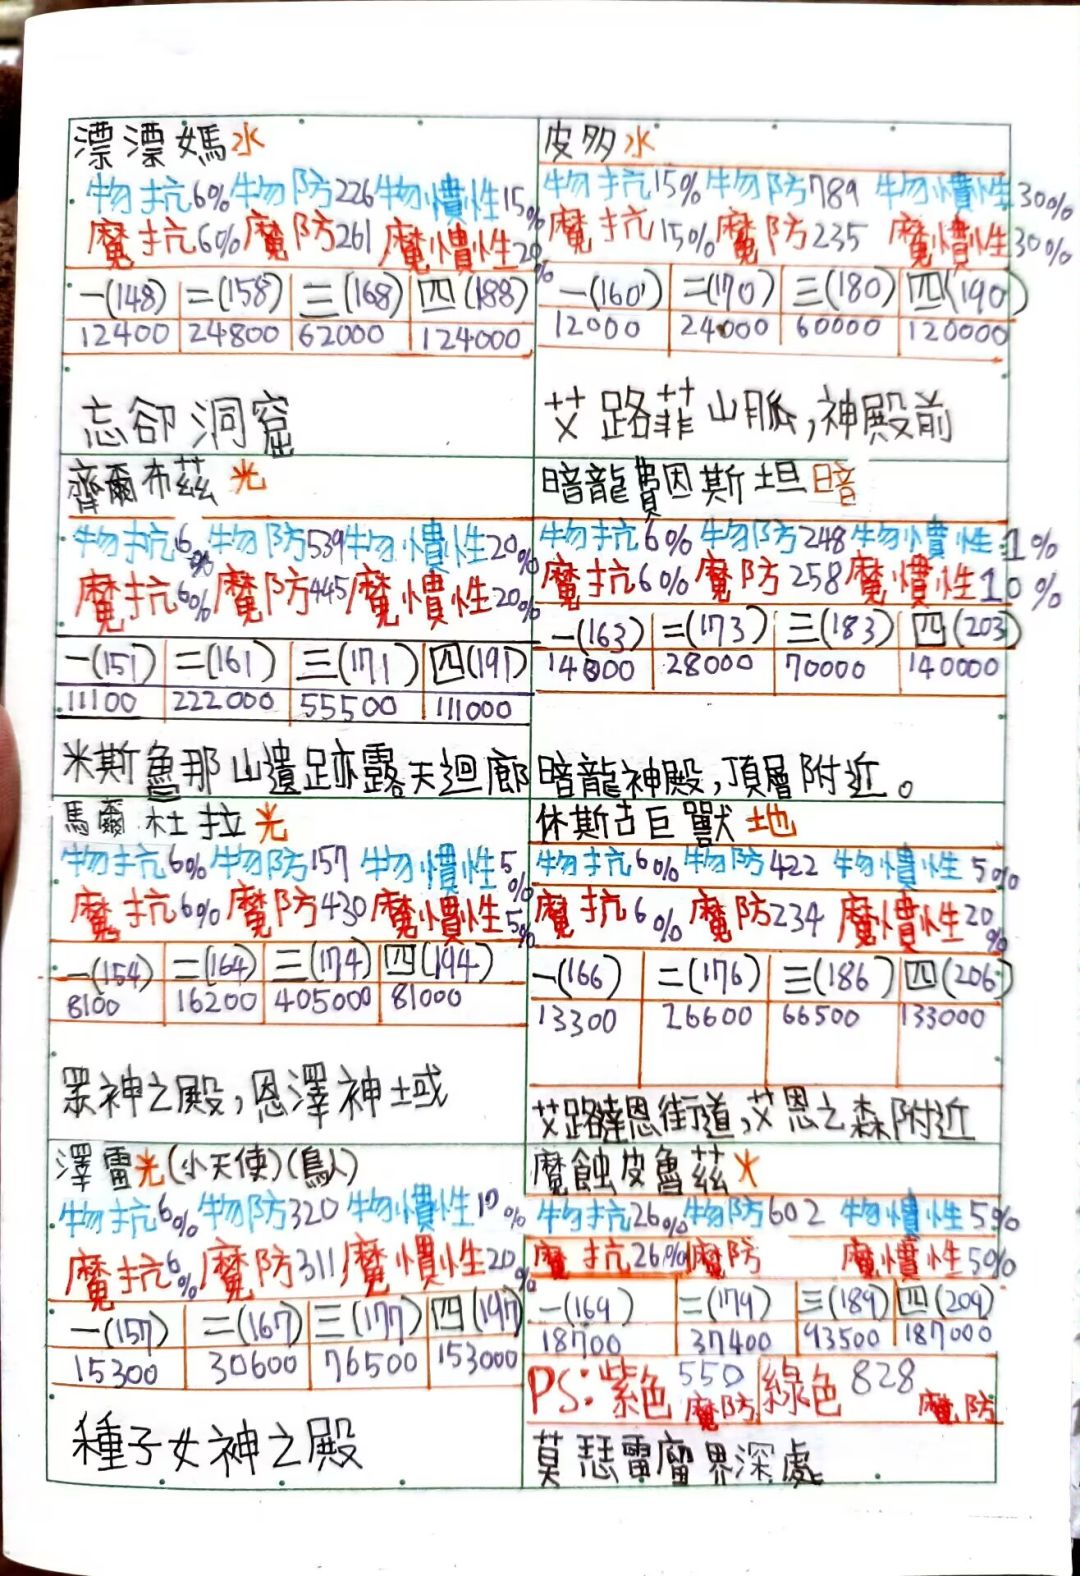 漂漂媽水
物抗6%物防226物慣性15%
魔抗6%魔防261魔慣性20%
一(148) 二(158) 三(168) 四(188)
12400 24800 62000 124000
忘卻洞窟
皮多水
物抗15%物防789 物慣性30%
魔抗15%魔防235 魔慣性30%
一(160) 二(170) 三(180) 四(190)
12000 24000 60000 120000
艾路菲山脈,神殿前
齊爾布茲光
物抗6%物防539物慣性20%
魔抗6%魔防445魔慣性20%
一(151) 二(161) 三(171) 四(191)
11100 222000 55500 111000
米斯魯那山遺跡露天迴廊
暗龍費因斯坦暗
物抗6%物防248物慣性1%
魔抗6%魔防258魔慣性10%
一(163) 二(173) 三(183) 四(203)
14000 28000 70000 140000
暗龍神殿,頂層附近。
馬爾杜拉光
物抗6%物防157物慣性5%
魔抗6%魔防430魔慣性5%
一(154) 二(164) 三(174) 四(194)
8100 16200 405000 81000
眾神之殿,恩澤神域
休斯古巨獸地
物抗6%物防422 物慣性5%
魔抗6%魔防234魔慣性20%
一(166) 二(176) 三(186) 四(206)
13300 26600 66500 133000
艾路達恩街道,艾恩之森附近
澤雷光(小天使)(鳥人)
物抗6%物防320物慣性10%
魔抗6%魔防311魔慣性20%
一(157) 二(167) 三(177) 四(197)
15300 30600 76500 153000
種子女神之殿
魔蝕皮魯茲火
物抗26%物防602 物慣性5%
魔抗26%魔防 魔慣性50%
一(169) 二(179) 三(189) 四(209)
18700 37400 93500 187000
PS:紫色550魔防綠色828魔防
莫瑟雷魔界深處